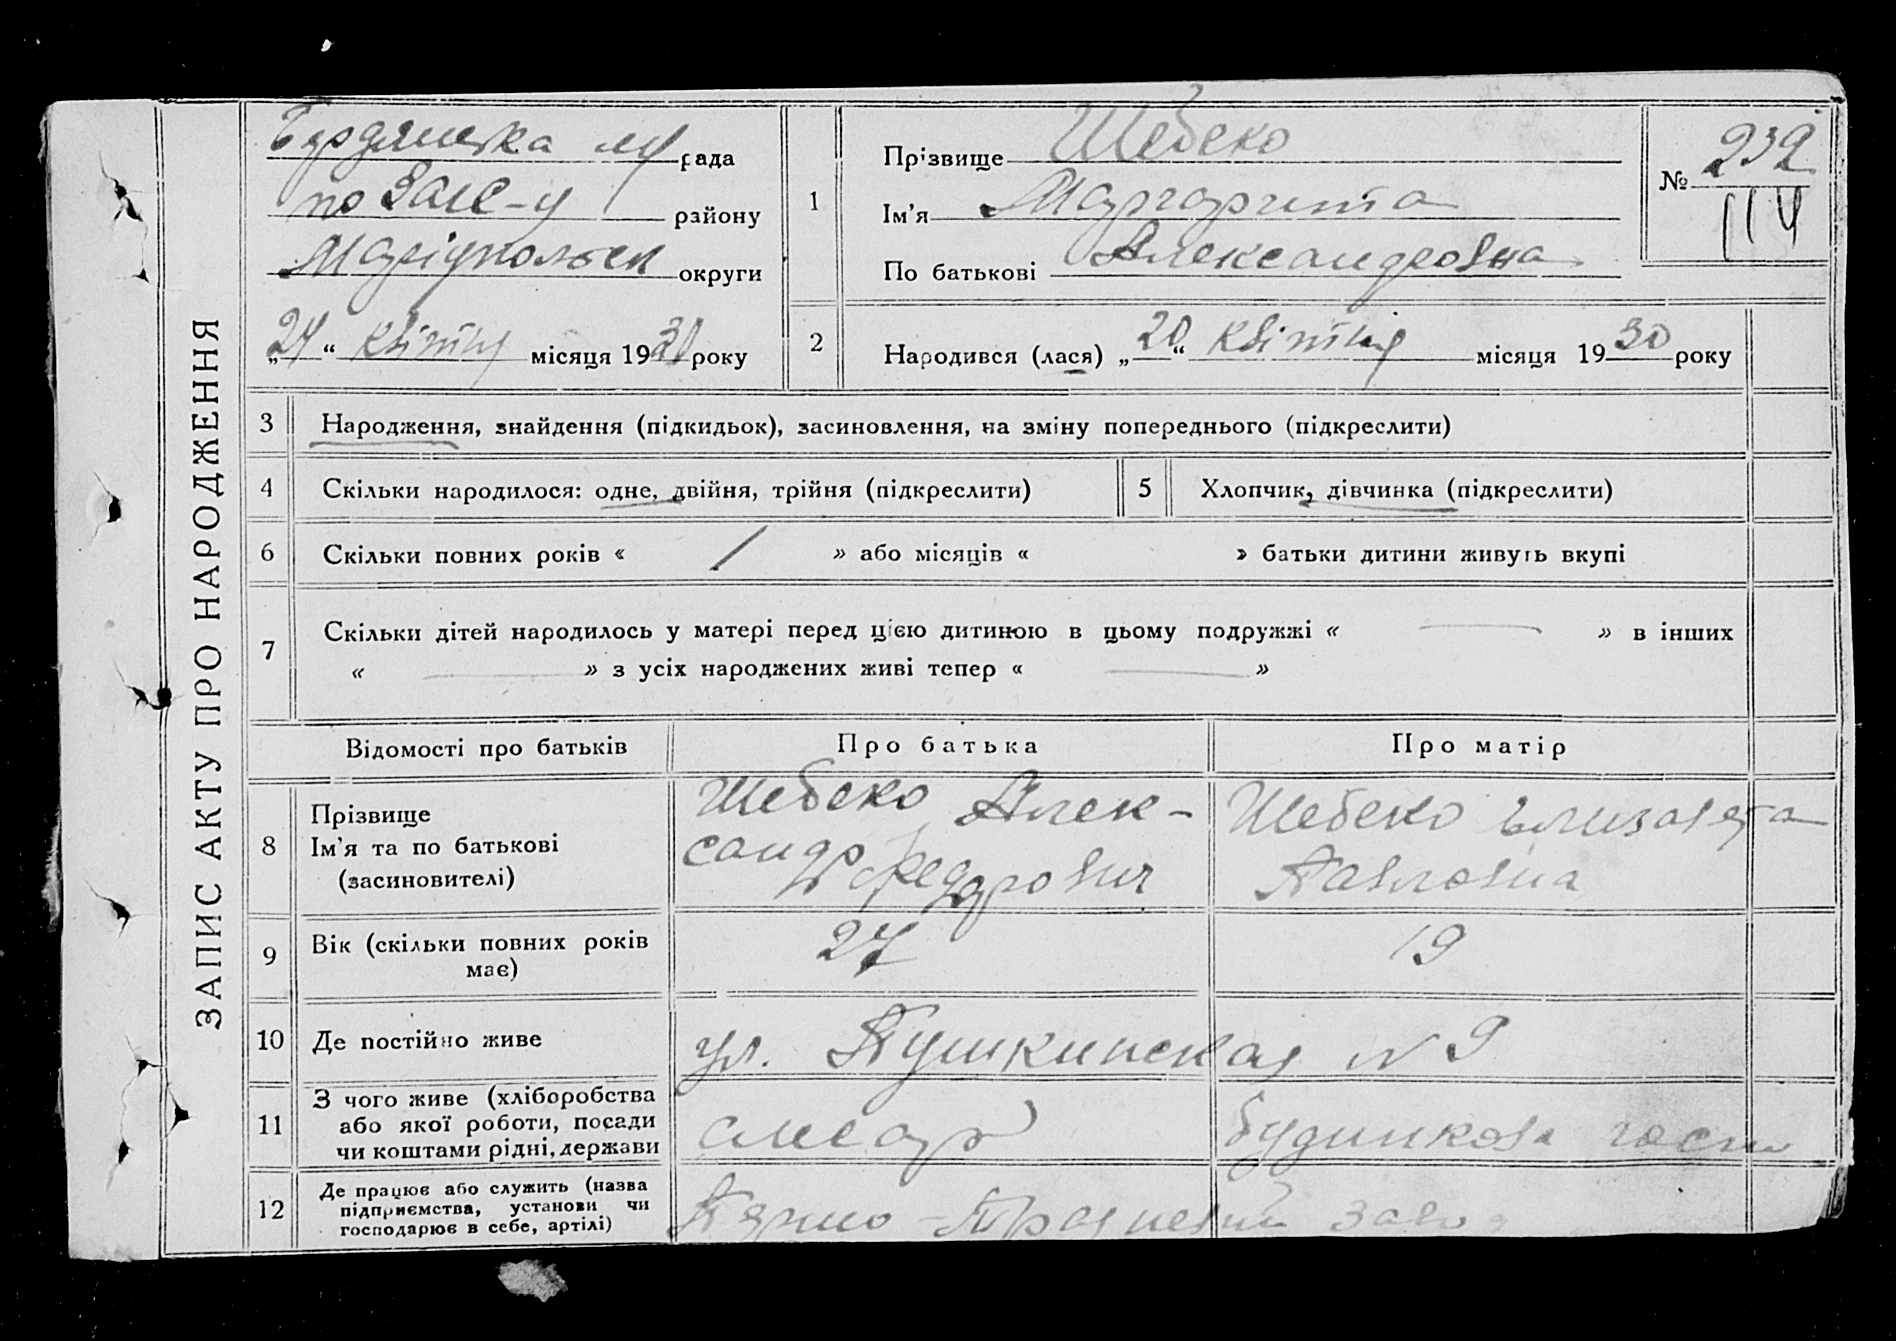 ЗАПИС АКТУ ПРО НАРОДЖЕННЯ
Бердянська м рада
по ЗАГС-у району
Маріупольськ округи
„24“ квітня місяця 1930 року
1 Прізвище Шебеко
Ім'я Маргарита
По батькові Александровна
№ 232
114
2 Народився (лася) „20“ квітня місяця 1930 року
3 Народження, знайдення (підкидьок), засиновлення, на зміну попереднього (підкреслити)
4 Скільки народилося: одне, двійня, трійня (підкреслити) 5 Хлопчик, дівчинка (підкреслити)
6 Скільки повних років « / » або місяців « » батьки дитини живуть вкупі
7 Скільки дітей народилось у матері перед цією дитиною в цьому подружжі « — » в інших
« — » з усіх народжених живі тепер « — »
Відомості про батьків Про батька Про матір
8 Прізвище
Ім'я та по батькові
(засиновителі)
Шебеко Алек-
сандр Федорович
Шебеко Елизавета
Павловна
9 Вік (скільки повних років
має)
27 19
10 Де постійно живе ул. Пушкинская № 9
11 З чого живе (хліборобства
або якої роботи, посади
чи коштами рідні, держави
слесар
будинкова госп
12 Де працює або служить (назва
підприємства, установи чи
господарює в себе, артілі)
завод